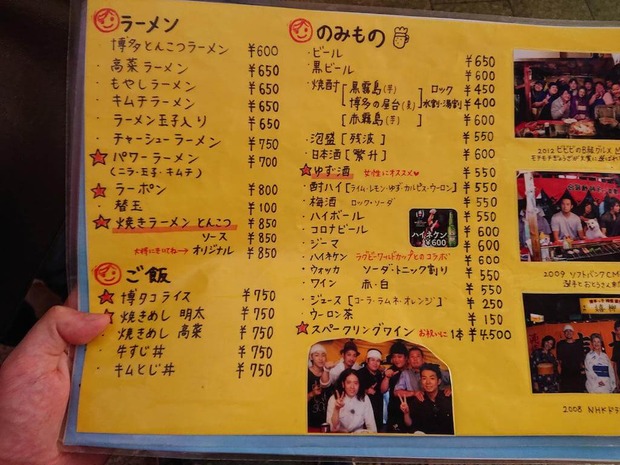 ラーメン
・博多とんこつラーメン ¥600
・高菜ラーメン ¥650
・もやしラーメン ¥650
・キムチラーメン ¥650
・ラーメン玉子入り ¥650
・チャーシューラーメン ¥750
パワーラーメン ¥700
(ニラ・玉子・キムチ)
ラーポン ¥800
・替玉 ¥100
焼きラーメン とんこつ ¥850
ソース ¥850
オリジナル ¥850
ご飯
博多コライス ¥750
焼きめし 明太 ¥750
・焼きめし 高菜 ¥750
・牛すじ丼 ¥750
・キムとじ丼 ¥750
のみもの
・ビール ¥650
・黒ビール ¥600
・焼酎 [黒霧島(芋) ロック ¥450
[博多の屋台(麦) 水割・湯割 ¥400
[赤霧島(芋) ¥600
・泡盛[残波] ¥550
・日本酒[繁升] ¥600
ゆず酒 女性にオススメ♥ ¥550
・酎ハイ[ライム・レモン・ゆず・カルピス・ウーロン] ¥550
・梅酒 ロック・ソーダ ¥550
・ハイボール ¥550
・コロナビール ¥600
・ジーマ ¥600
・ハイネケン ラグビーワールドカップとのコラボ ¥600
・ウォッカ ソーダ・トニック割り ¥550
・ワイン 赤・白 ¥550
・ジュース[コーラ・ラムネ・オレンジ] ¥250
・ウーロン茶 ¥150
スパークリングワイン お祝いに 1本 ¥4,500
ハイネケン
¥600
2009 ソフトバンクCM
選手とおとうさん
2008 NHK